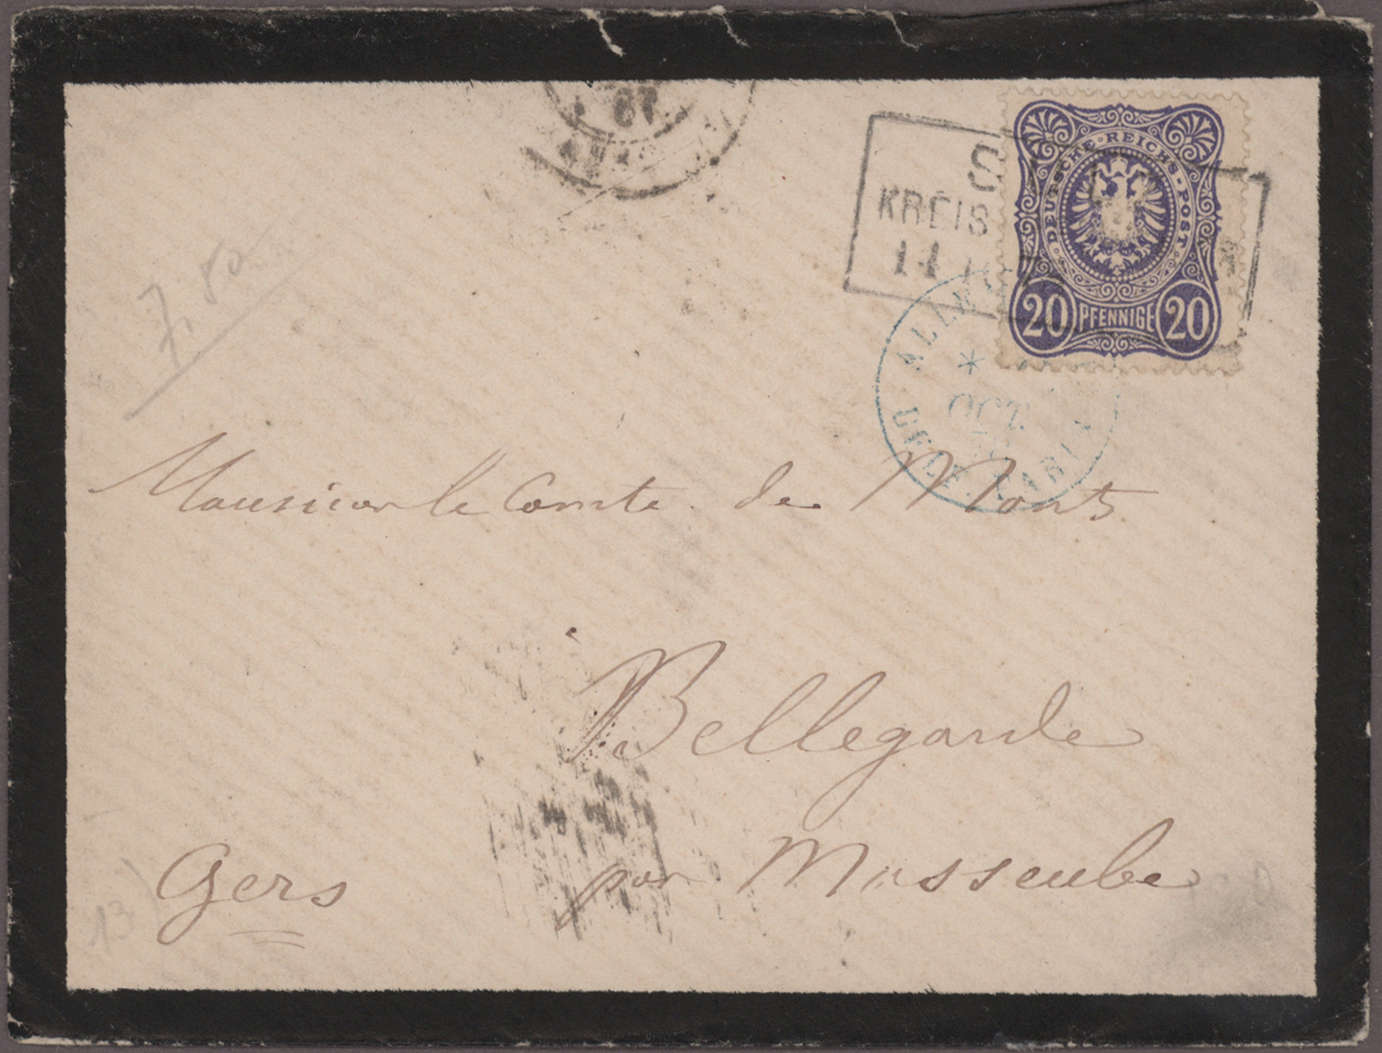 7,50
DEUTSCHE·REICHS-POST
20 PFENNIGE 20
KREIS
14
OCT.
Monsieur le Comte de Monts
Bellegarde
par Masseube
Gers
13